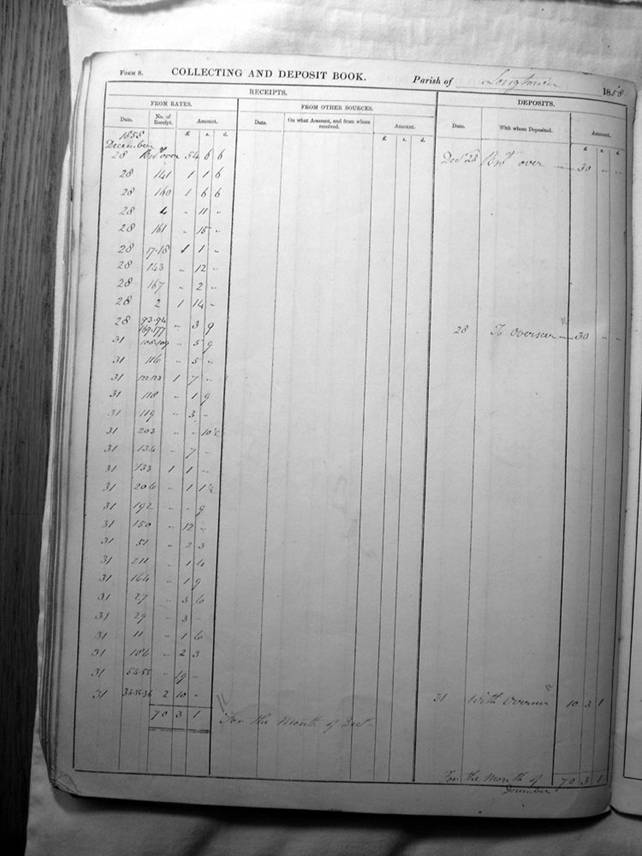 FORM 8. COLLECTING AND DEPOSIT BOOK. Parish of 1858
RECEIPTS. DEPOSITS.
FROM RATES. FROM OTHER SOURCES.
Date. No. of Receipt. Amount. Date. On what Account, and from whom received. Amount. Date. With whom Deposited. Amount.
£ s. d. £ s. d. £ s. d.
1858
December
28 Brot over 54 6 6 Decr 28 Brot over 30 - -
28 141 1 1 6
28 160 1 6 6
28 4 - 11 -
28 161 - 15 -
28 17-18 1 1 -
28 143 - 12 -
28 167 - 2 -
28 2 1 14 -
28 93-94
169-177 - 3 9 28 To Overseer 30 - -
31 108-109 - 5 9
31 116 - 5 -
31 1 7 -
31 118 - 1 9
31 119 - 3 -
31 203 - - 10½
31 134 - 7 -
31 133 1 1 -
31 206 - 1 1½
31 192 - - 9
31 150 - 12 -
31 51 - 2 3
31 211 - 1 4
31 164 - 1 9
31 27 - 3 6
31 29 - 3 -
31 11 - 1 6
31 186 - 2 3
31 54-55 -
31 2 10 - 31 With Overseer 10 3 1
70 3 1 For the Month of Decr
For the Month of 70 3 1
December